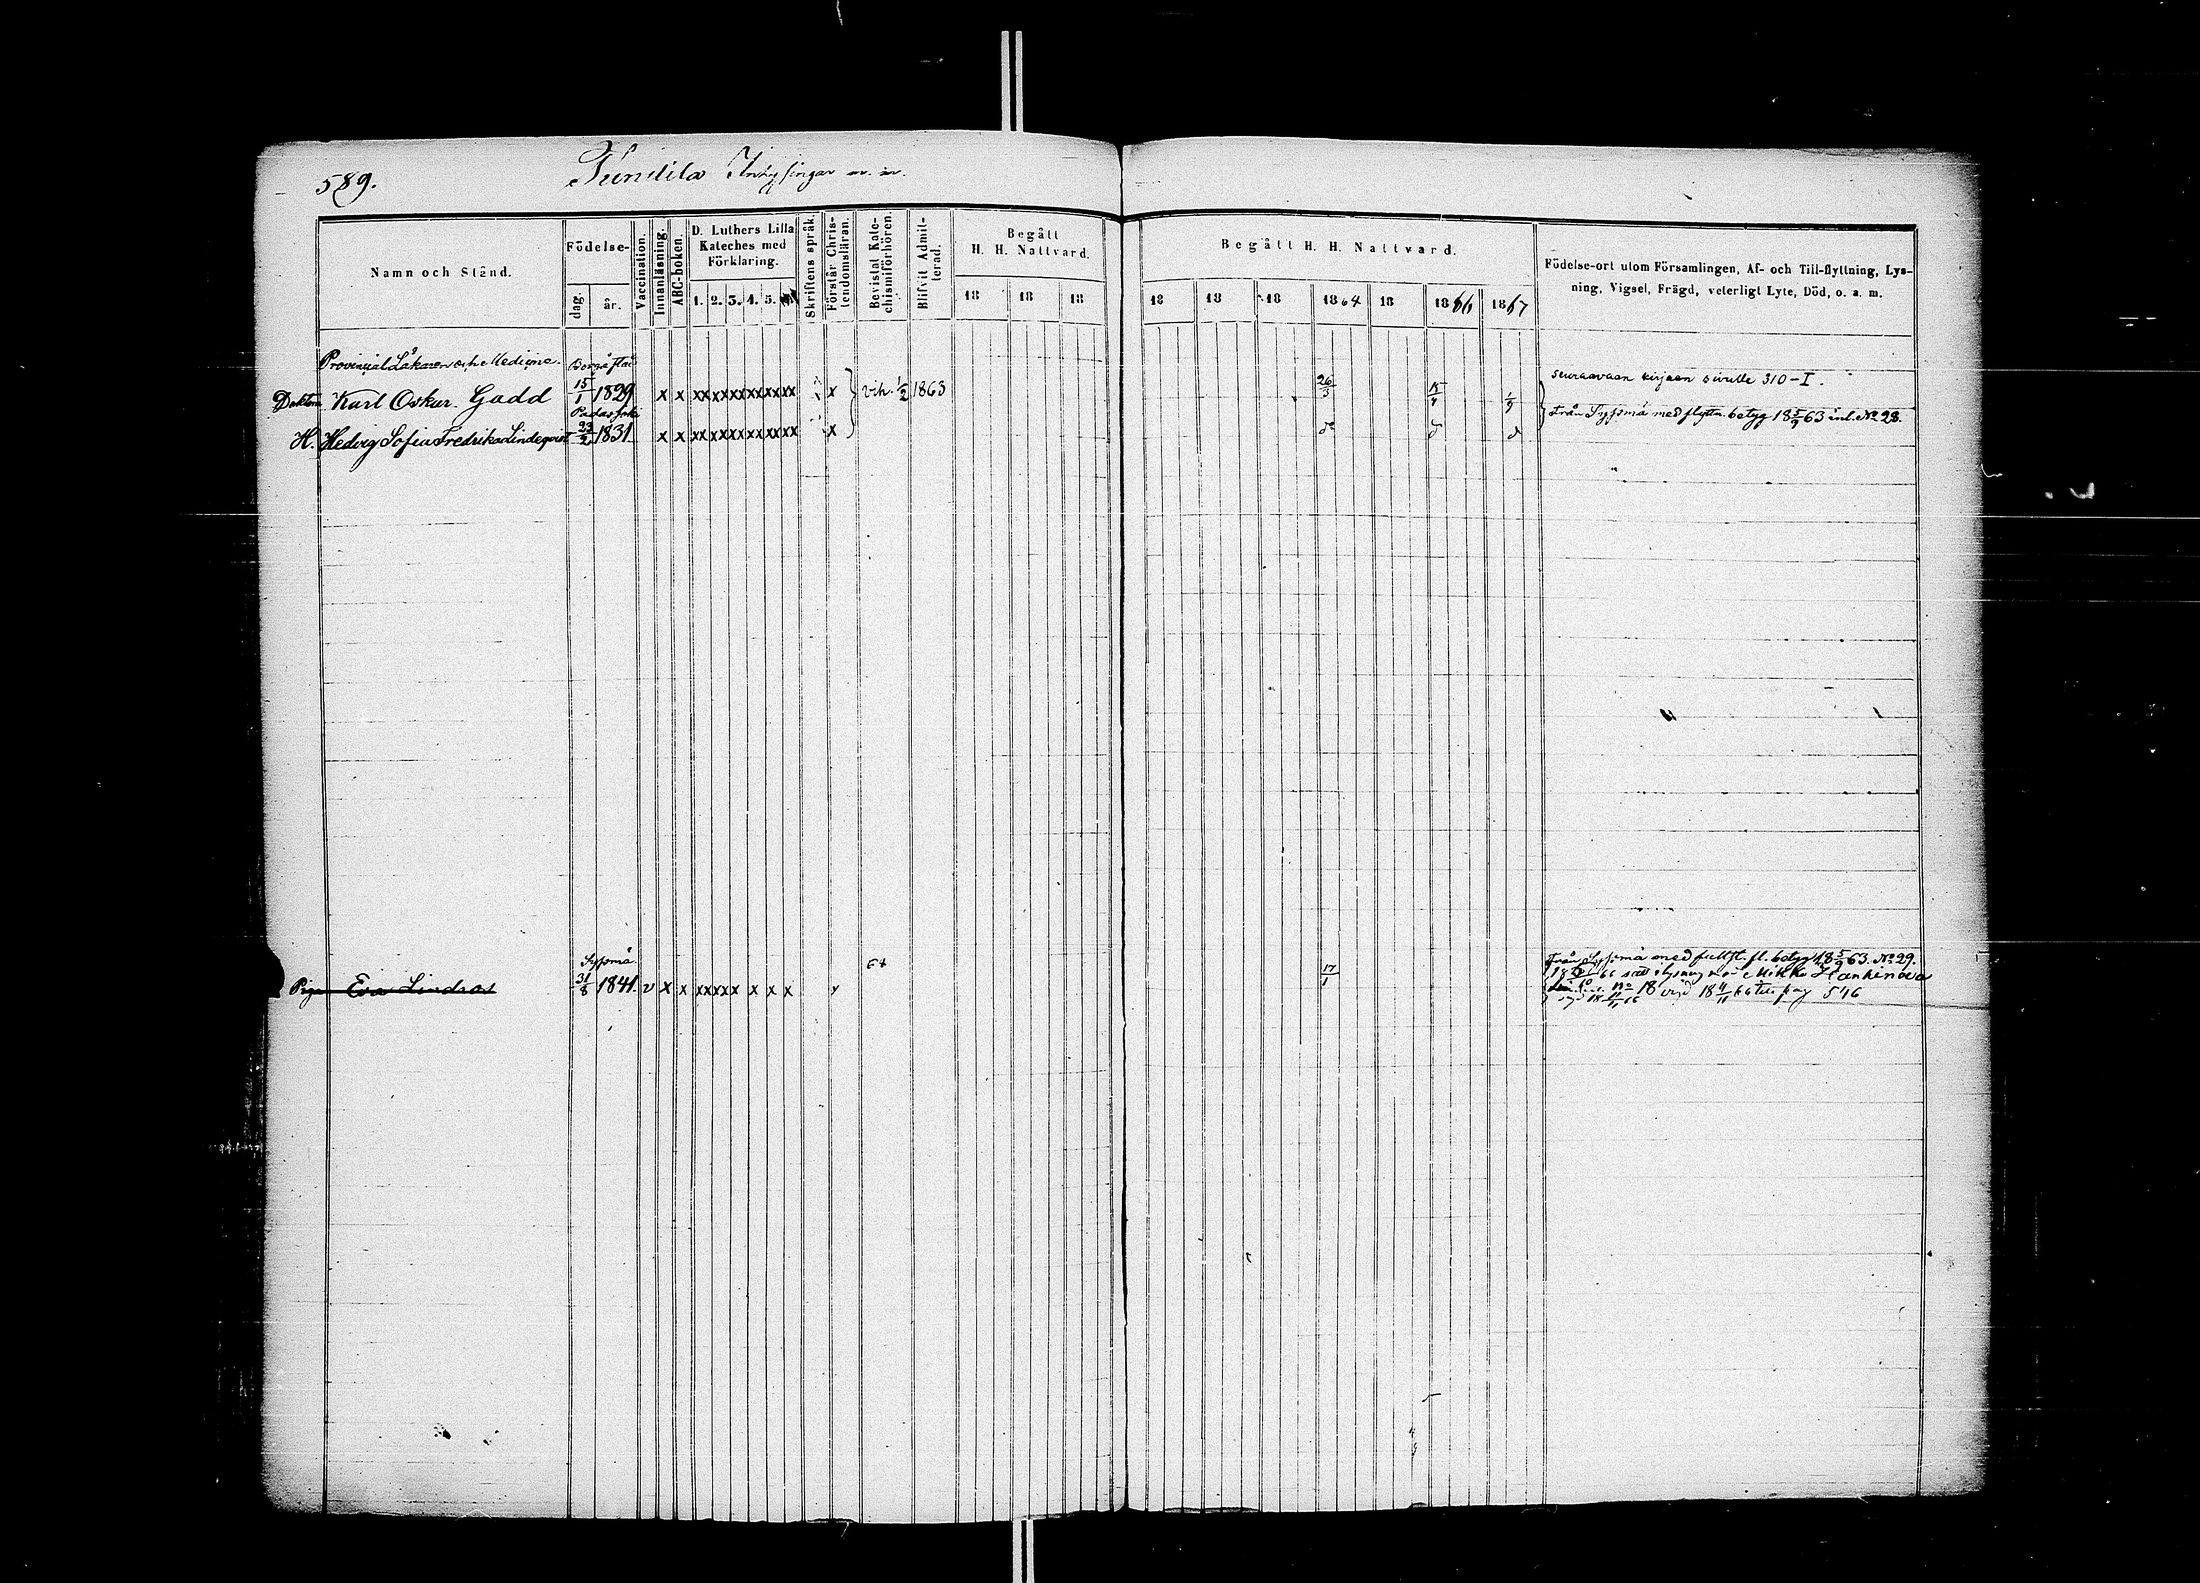 589.
Inhysingar m. m.
Namn och Stånd.
Födelse-
dag.
år.
Vaccination.
Innanläsning.
ABC-boken.
D. Luthers Lilla
Kateches med
Förklaring.
1. 2. 3. 4. 5.
Skriftens språk.
Förstår Chris-
tendomsläran.
Bevistat Kate-
chismiförhören.
Blifvit Admit-
terad.
Begått
H. H. Nattvard.
18 18 18
Begått H. H. Nattvard.
18 18 18 1864 18 1866 1867
Födelse-ort utom Församlingen, Af- och Till-flyttning, Lys-
ning, Vigsel, Frägd, veterligt Lyte, Död, o. a. m.
Provincial Läkaren och Medicine. Borgå stad
Doktorn Karl Oskar Gadd 15/1 1829 x x xx xx xx xx xx xx x vih. 1/2 1863 26/3 seuraavaan kirjaan sivulle 310-I.
Padasjoki
H. Hedvig Sofia Fredrika Lindeqvist 23/2 1831 x x xx xx xx xx xx xx x Från Sysmä med flyttn. betyg 18 5/9 63 inl. No 28.
Sysmä
Piga Eva Lindros 31/8 1841 v x x xx xx x x x x 17/1 Från Sysmä med fl. betyg 18 5/9 63. No 29.